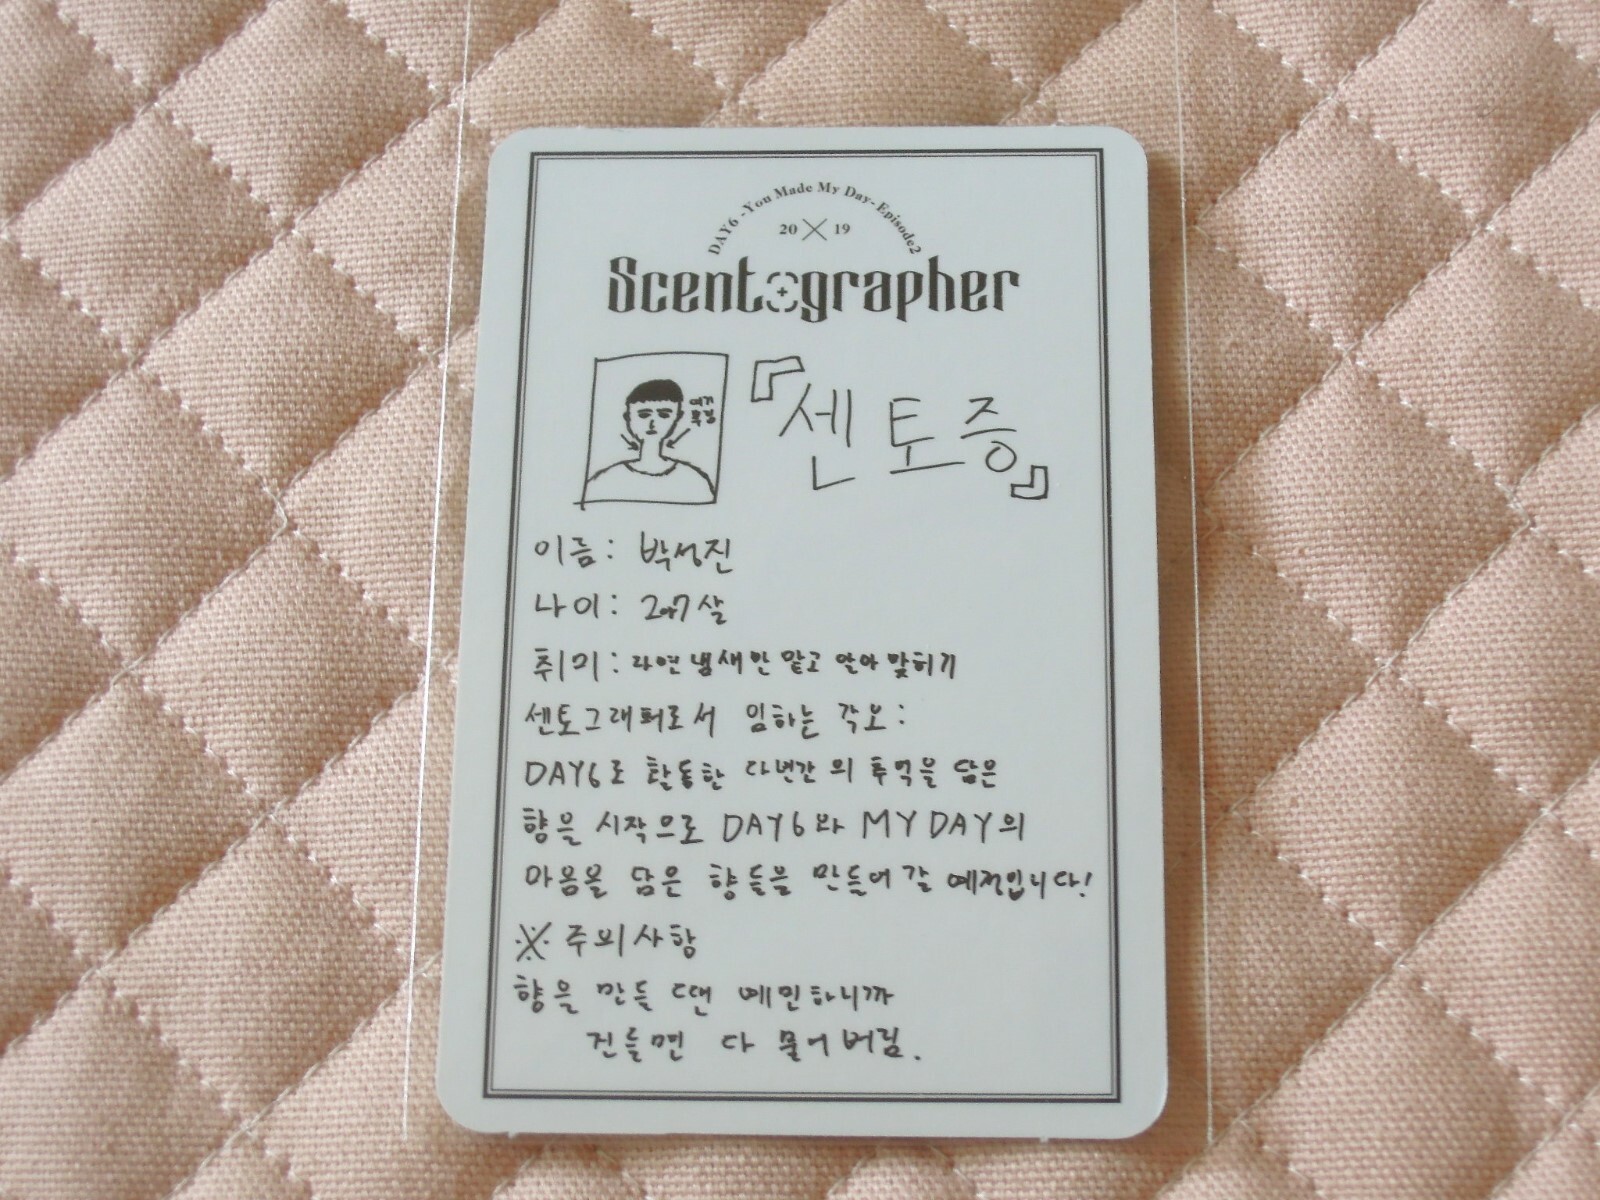 DAY6 -You Made My Day- Episode2
20 19
Scentographer
여기
『센토증』
이름: 박성진
나이: 2017살
취미: 라면 냄새만 맡고 알아맞히기
센토그래퍼로서 임하는 각오:
DAY6로 활동한 다년간의 추억을 담은
향을 시작으로 DAY6와 MY DAY의
마음을 담은 향들을 만들어갈 예정입니다!
※ 주의사항
향을 만들 땐 예민하니까
건들면 다 물어버림.